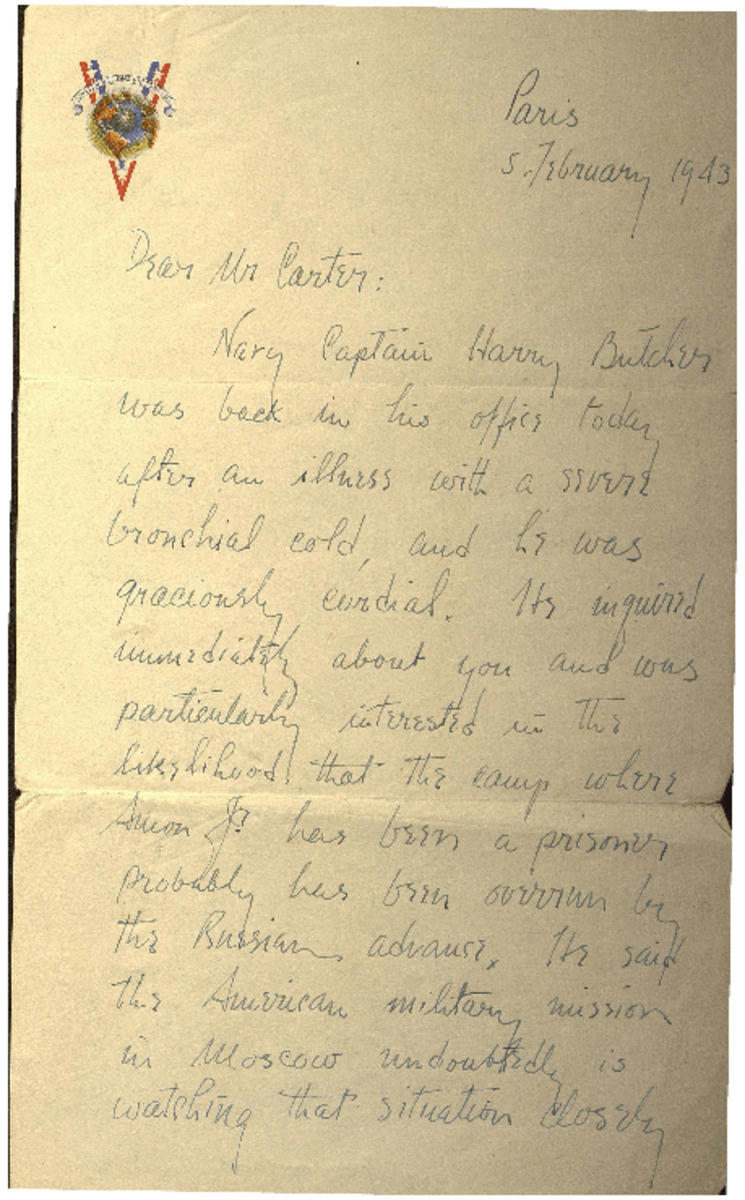 Paris
5. February 1943
Dear Mr Carter:
Navy Captain Harry Butcher
was back in his office today
after an illness with a severe
bronchial cold, and he was
graciously cordial. He inquired
immediately about you and was
particularly interested in the
likelihood that the camp where
Amon Jr. has been a prisoner
probably has been overrun by
the Russian advance. He said
the American military mission
in Moscow undoubtedly is
watching that situation closely